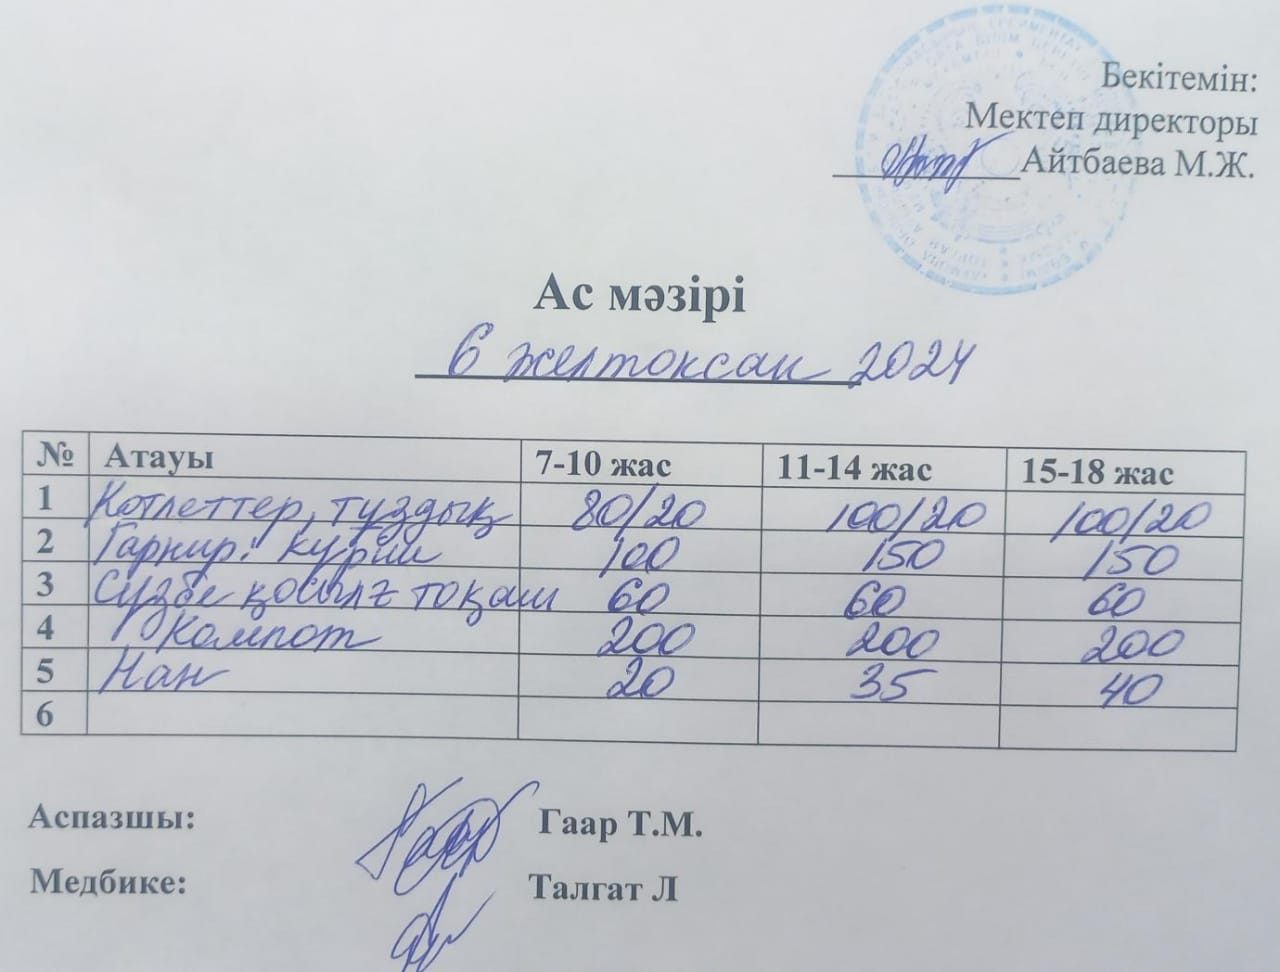 Бекітемін:
Мектеп директоры
Айтбаева М.Ж.
Ас мәзірі
6 желтоксан 2024
№ Атауы 7-10 жас 11-14 жас 15-18 жас
1 Котлеттер, тұздық 80/20 100/20 100/20
2 Гарнир: күріш 100 150 150
3 Сүзбе қосылғ тоқаш 60 60 60
4 Компот 200 200 200
5 Нан 20 35 40
6
Аспазшы: Гаар Т.М.
Медбике: Талгат Л